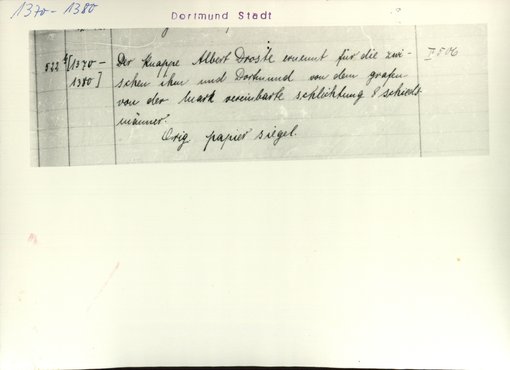 1370 - 1380
Dortmund Stadt
522 a [1370 -
1380]
Der Knappe Albert Droste ernennt für die zwi-
schen ihm und Dortmund von dem grafen
von der Mark vereinbarte schlichtung 8 schieds
männer.
Orig papier siegel.